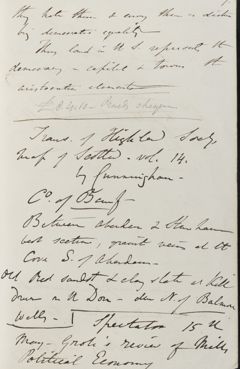 they hate them & envy them is distinct
by democratic equality
They land in U S. represents the
democracy - capital & towns the
aristocratic element
Trans. of Highland Socy.
map of Scotld. vol. 14.
by Cunningham -
Co. of Banff -
Between Aberdeen & Stonehaven
best section, granit veins at the
Cove S. of Aberdeen -
Old Red sandst & clay slate at Kill
Drum in the Don -
Spectator 15th
May - Grote's review of Mill's
Political Economy